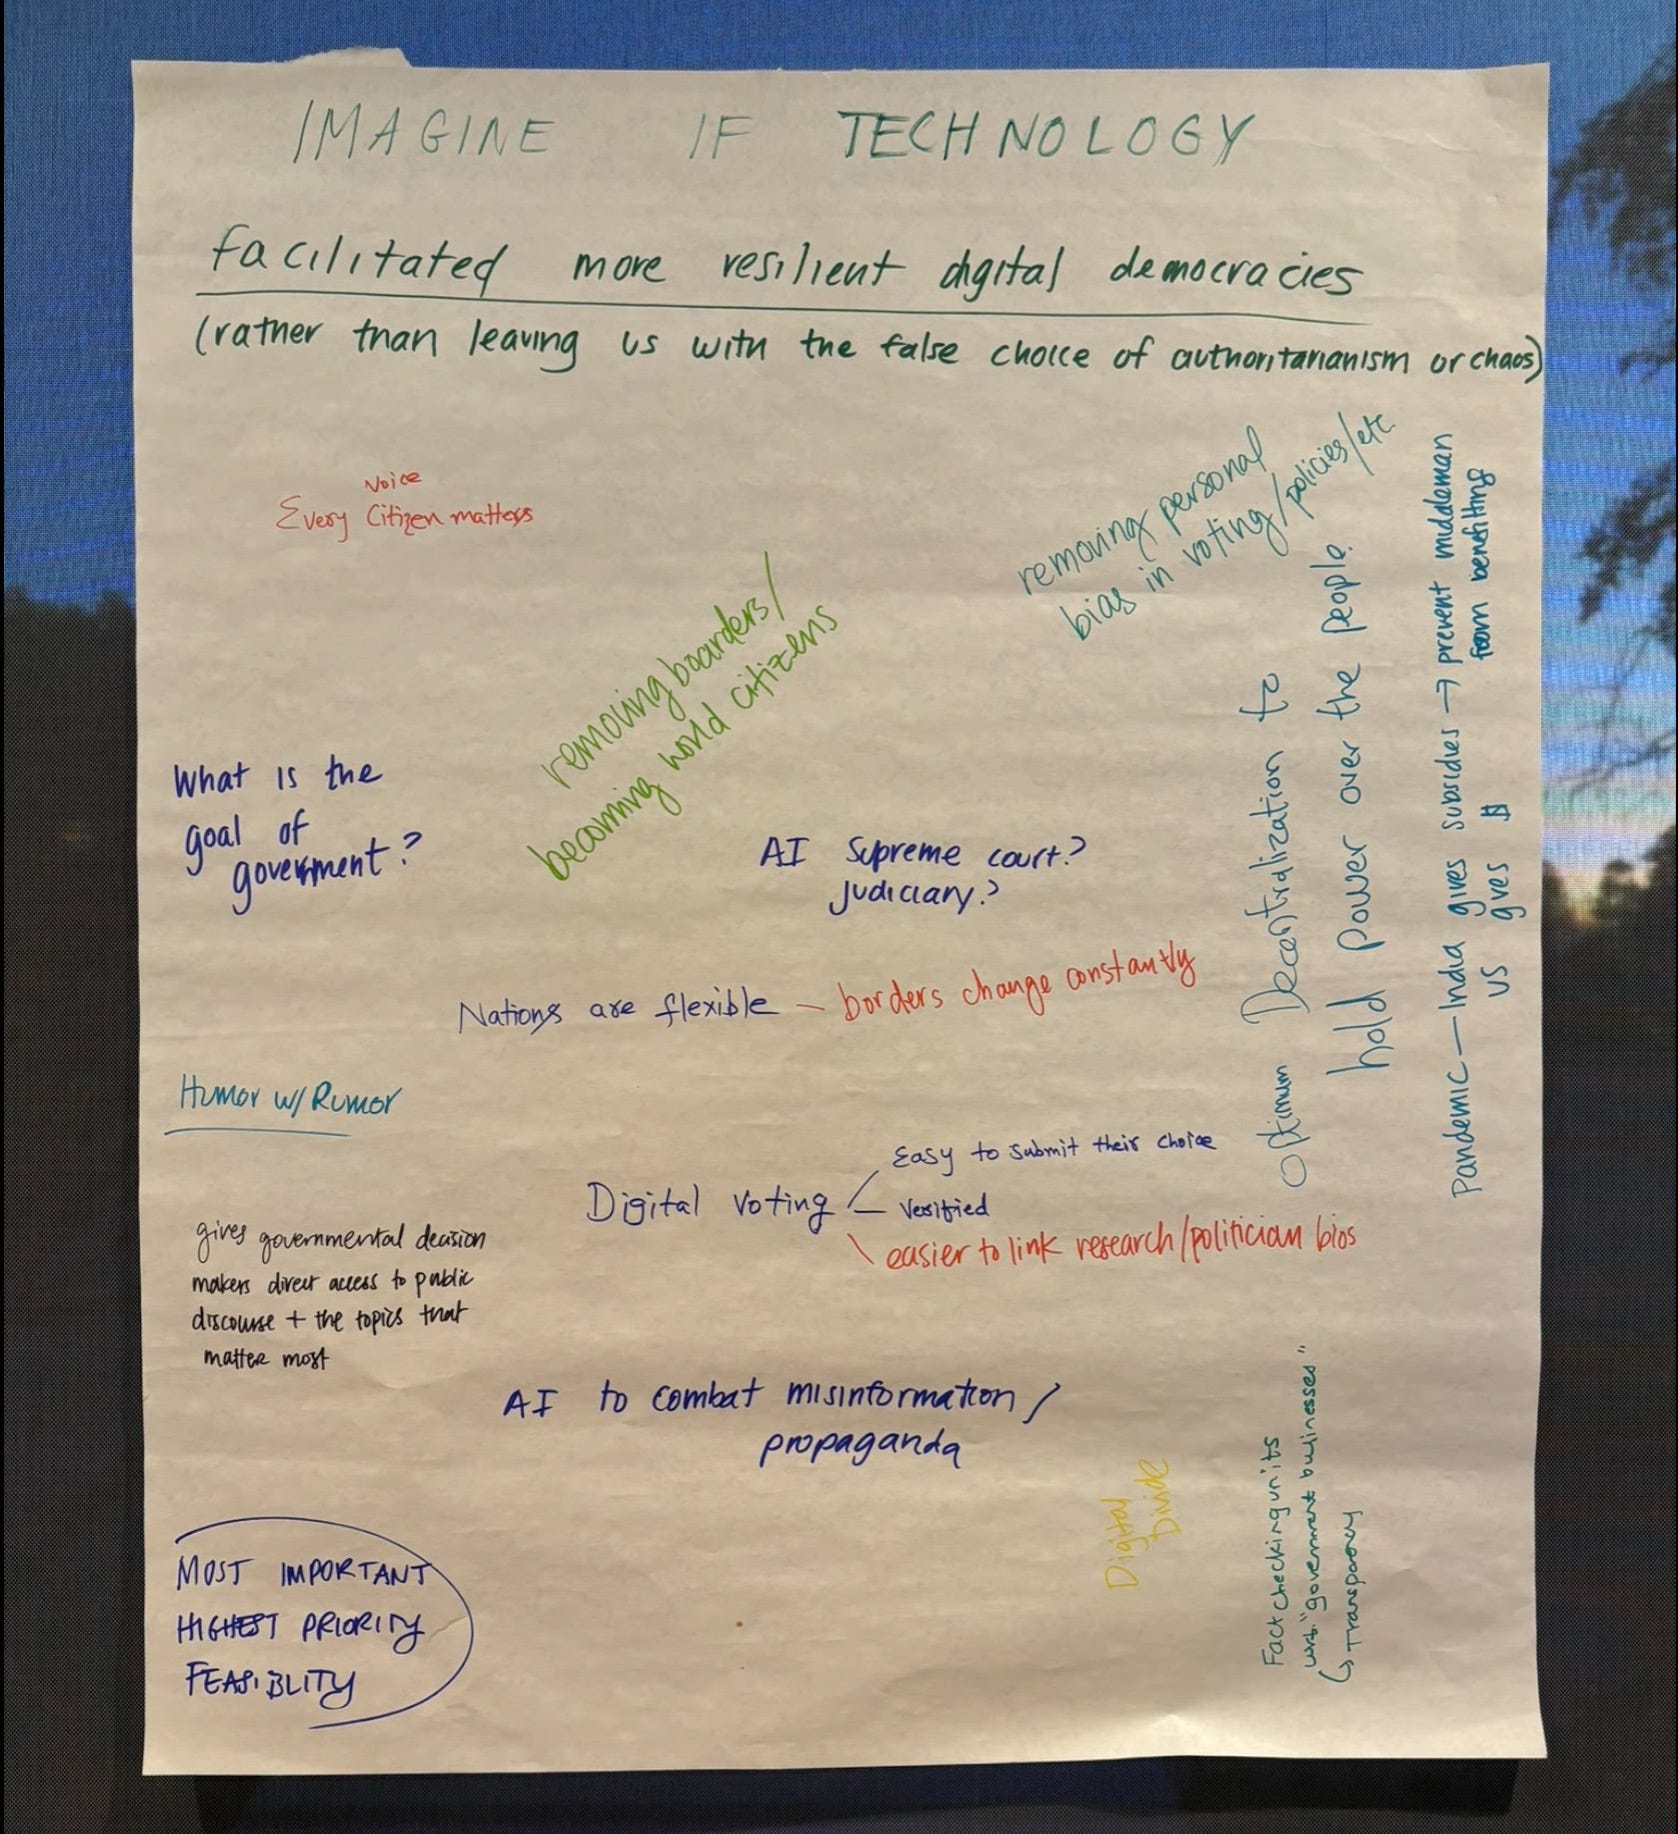 IMAGINE IF TECHNOLOGY
facilitated more resilient digital democracies
(rather than leaving us with the false choice of authoritarianism or chaos)
Voice
Every Citizen matters
removing personal
bias in voting/policies/etc.
removing boarders/
becoming world citizens
What is the
goal of
government?
AI Supreme court?
judiciary?
Nations are flexible – borders change constantly
Optimum Decentralization to
hold power over the people.
Pandemic – India gives subsidies → prevent middleman
from benefitting
US gives $
Humor w/ Rumor
Digital Voting
Easy to submit their choice
Verified
easier to link research/politician bios
gives governmental decision
makers direct access to public
discourse + the topics that
matter most
AI to combat misinformation/
propaganda
Digital
Divide
Fact checking units
wrt. "government businesses"
↳ transparency
MOST IMPORTANT
HIGHEST PRIORITY
FEASIBLITY